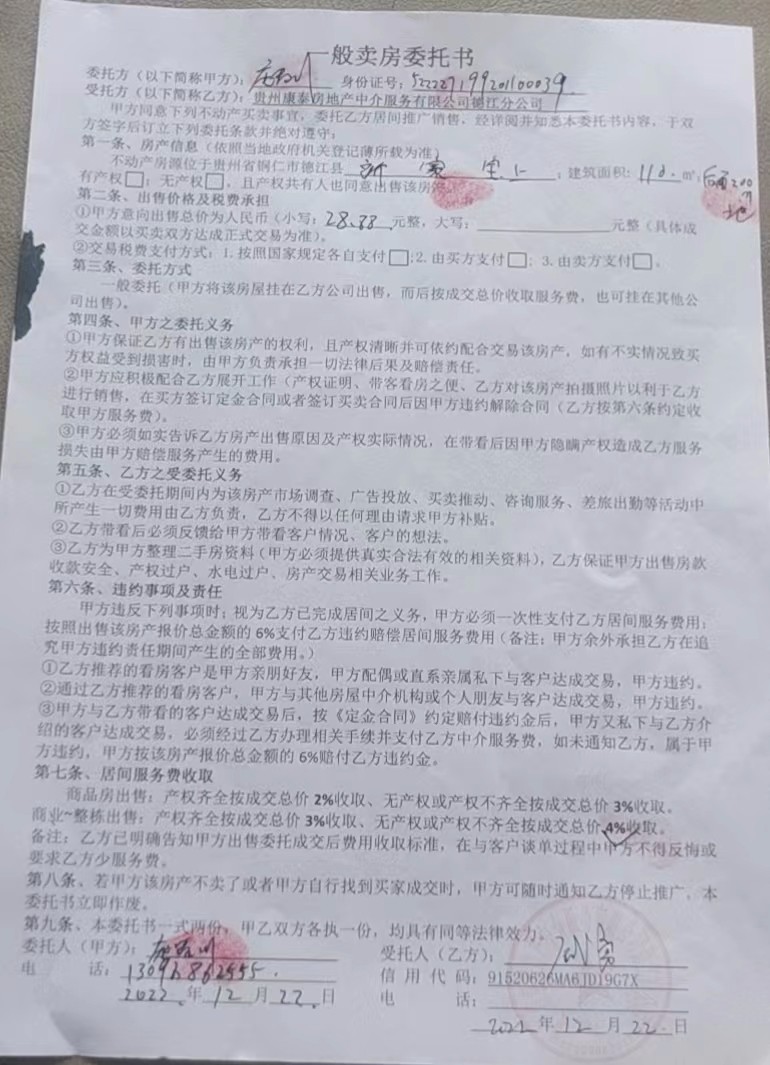 一般卖房委托书
委托方（以下简称甲方）： 身份证号：522227199201100039
受托方（以下简称乙方）：贵州康泰房地产中介服务有限公司德江分公司
甲方同意下列不动产买卖事宜，委托乙方居间推广销售，经详阅并知悉本委托书内容，于双
方签字后订立下列委托条款并绝对遵守：
第一条、房产信息（依照当地政府机关登记薄所载为准）
不动产房源位于贵州省铜仁市德江县 ；建筑面积：110.㎡； 200
有产权□；无产权□，且产权共有人也同意出售该房 地
第二条、出售价格及税费承担
①甲方意向出售总价为人民币（小写：28.88 元整，大写： 元整（具体成
交金额以买卖双方达成正式交易为准）。
②交易税费支付方式：1. 按照国家规定各自支付□；2. 由买方支付□；3. 由卖方支付□。
第三条、委托方式
一般委托（甲方将该房屋挂在乙方公司出售，而后按成交总价收取服务费，也可挂在其他公
司出售）。
第四条、甲方之委托义务
①甲方保证乙方有出售该房产的权利，且产权清晰并可依约配合交易该房产，如有不实情况致买
方权益受到损害时，由甲方负责承担一切法律后果及赔偿责任。
②甲方应积极配合乙方展开工作（产权证明、带客看房之便、乙方对该房产拍摄照片以利于乙方
进行销售，在买方签订定金合同或者签订买卖合同后因甲方违约解除合同（乙方按第六条约定收
取甲方服务费）。
③甲方必须如实告诉乙方房产出售原因及产权实际情况，在带看后因甲方隐瞒产权造成乙方服务
损失由甲方赔偿服务产生的费用。
第五条、乙方之受委托义务
①乙方在受委托期间内为该房产市场调查、广告投放、买卖推动、咨询服务、差旅出勤等活动中
所产生一切费用由乙方负责，乙方不得以任何理由请求甲方补贴。
②乙方带看后必须反馈给甲方带看客户情况、客户的想法。
③乙方为甲方整理二手房资料（甲方必须提供真实合法有效的相关资料），乙方保证甲方出售房款
收款安全、产权过户、水电过户、房产交易相关业务工作。
第六条、违约事项及责任
甲方违反下列事项时；视为乙方已完成居间之义务，甲方必须一次性支付乙方居间服务费用；
按照出售该房产报价总金额的 6%支付乙方违约赔偿居间服务费用（备注：甲方余外承担乙方在追
究甲方违约责任期间产生的全部费用。）
①乙方推荐的看房客户是甲方亲朋好友，甲方配偶或直系亲属私下与客户达成交易，甲方违约。
②通过乙方推荐的看房客户，甲方与其他房屋中介机构或个人朋友与客户达成交易，甲方违约。
③甲方与乙方带看的客户达成交易后，按《定金合同》约定赔付违约金后，甲方又私下与乙方介
绍的客户达成交易，必须经过乙方办理相关手续并支付乙方中介服务费，如未通知乙方，属于甲
方违约，甲方按该房产报价总金额的 6%赔付乙方违约金。
第七条、居间服务费收取
商品房出售：产权齐全按成交总价 2%收取、无产权或产权不齐全按成交总价 3%收取。
商业~整栋出售：产权齐全按成交总价 3%收取、无产权或产权不齐全按成交总价 4%收取。
备注：乙方已明确告知甲方出售委托成交后费用收取标准，在与客户谈单过程中甲方不得反悔或
要求乙方少服务费。
第八条、若甲方该房产不卖了或者甲方自行找到买家成交时，甲方可随时通知乙方停止推广，本
委托书立即作废。
第九条、本委托书一式两份，甲乙双方各执一份，均具有同等法律效力。
委托人（甲方）： 受托人（乙方）：
电 话：13096862555. 信用代码：91520626MA6JD19G7X
2022.年12月22.日 电 话：
2022年12月22.日